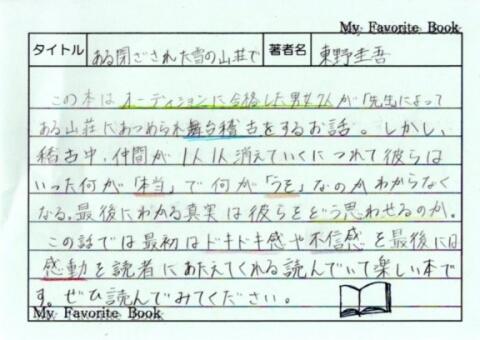 My Favorite Book
タイトル ある閉ざされた雪の山荘で 著者名 東野圭吾
この本はオーディションに合格した男女7人が「先生によって
ある山荘にあつめられ舞台稽古をするお話。しかし、
稽古中、仲間が1人1人消えていくにつれて彼らは
いった何が「本当」で何が「うそ」なのかわからなく
なる。最後にわかる真実は彼らをどう思わせるのか。
この話では最初はドキドキ感や不信感を最後には
感動を読者にあたえてくれる読んでいて楽しい本で
す。ぜひ読んでみてください。
My Favorite Book